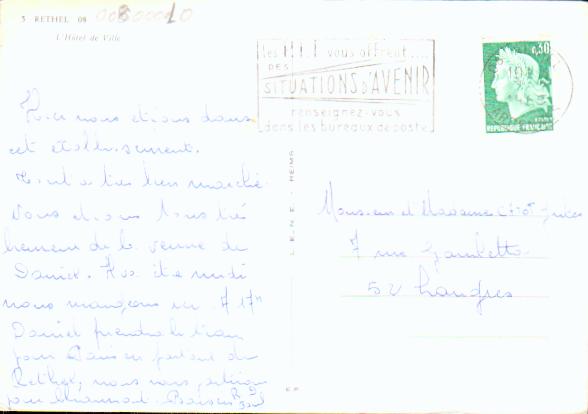 5 RETHEL 08
L'Hôtel de Ville
les P.T.T vous offrent....
DES
SITUATIONS D'AVENIR
renseignez-vous
dans les bureaux de poste
0,30
REPUBLIQUE FRANCAISE
L.E.N.E. - REIMS
nous étions dans
cet établissement.
Tout a très bien marché
Nous étions tous très
heureux de la venue de
Daniel. midi
nous mangeons ici. A 17h
Daniel prendra le train
pour Paris en partant de
Rethel, nous nous
pour Baisers
Monsieur et Madame
7 rue Gambetta
52 Langres